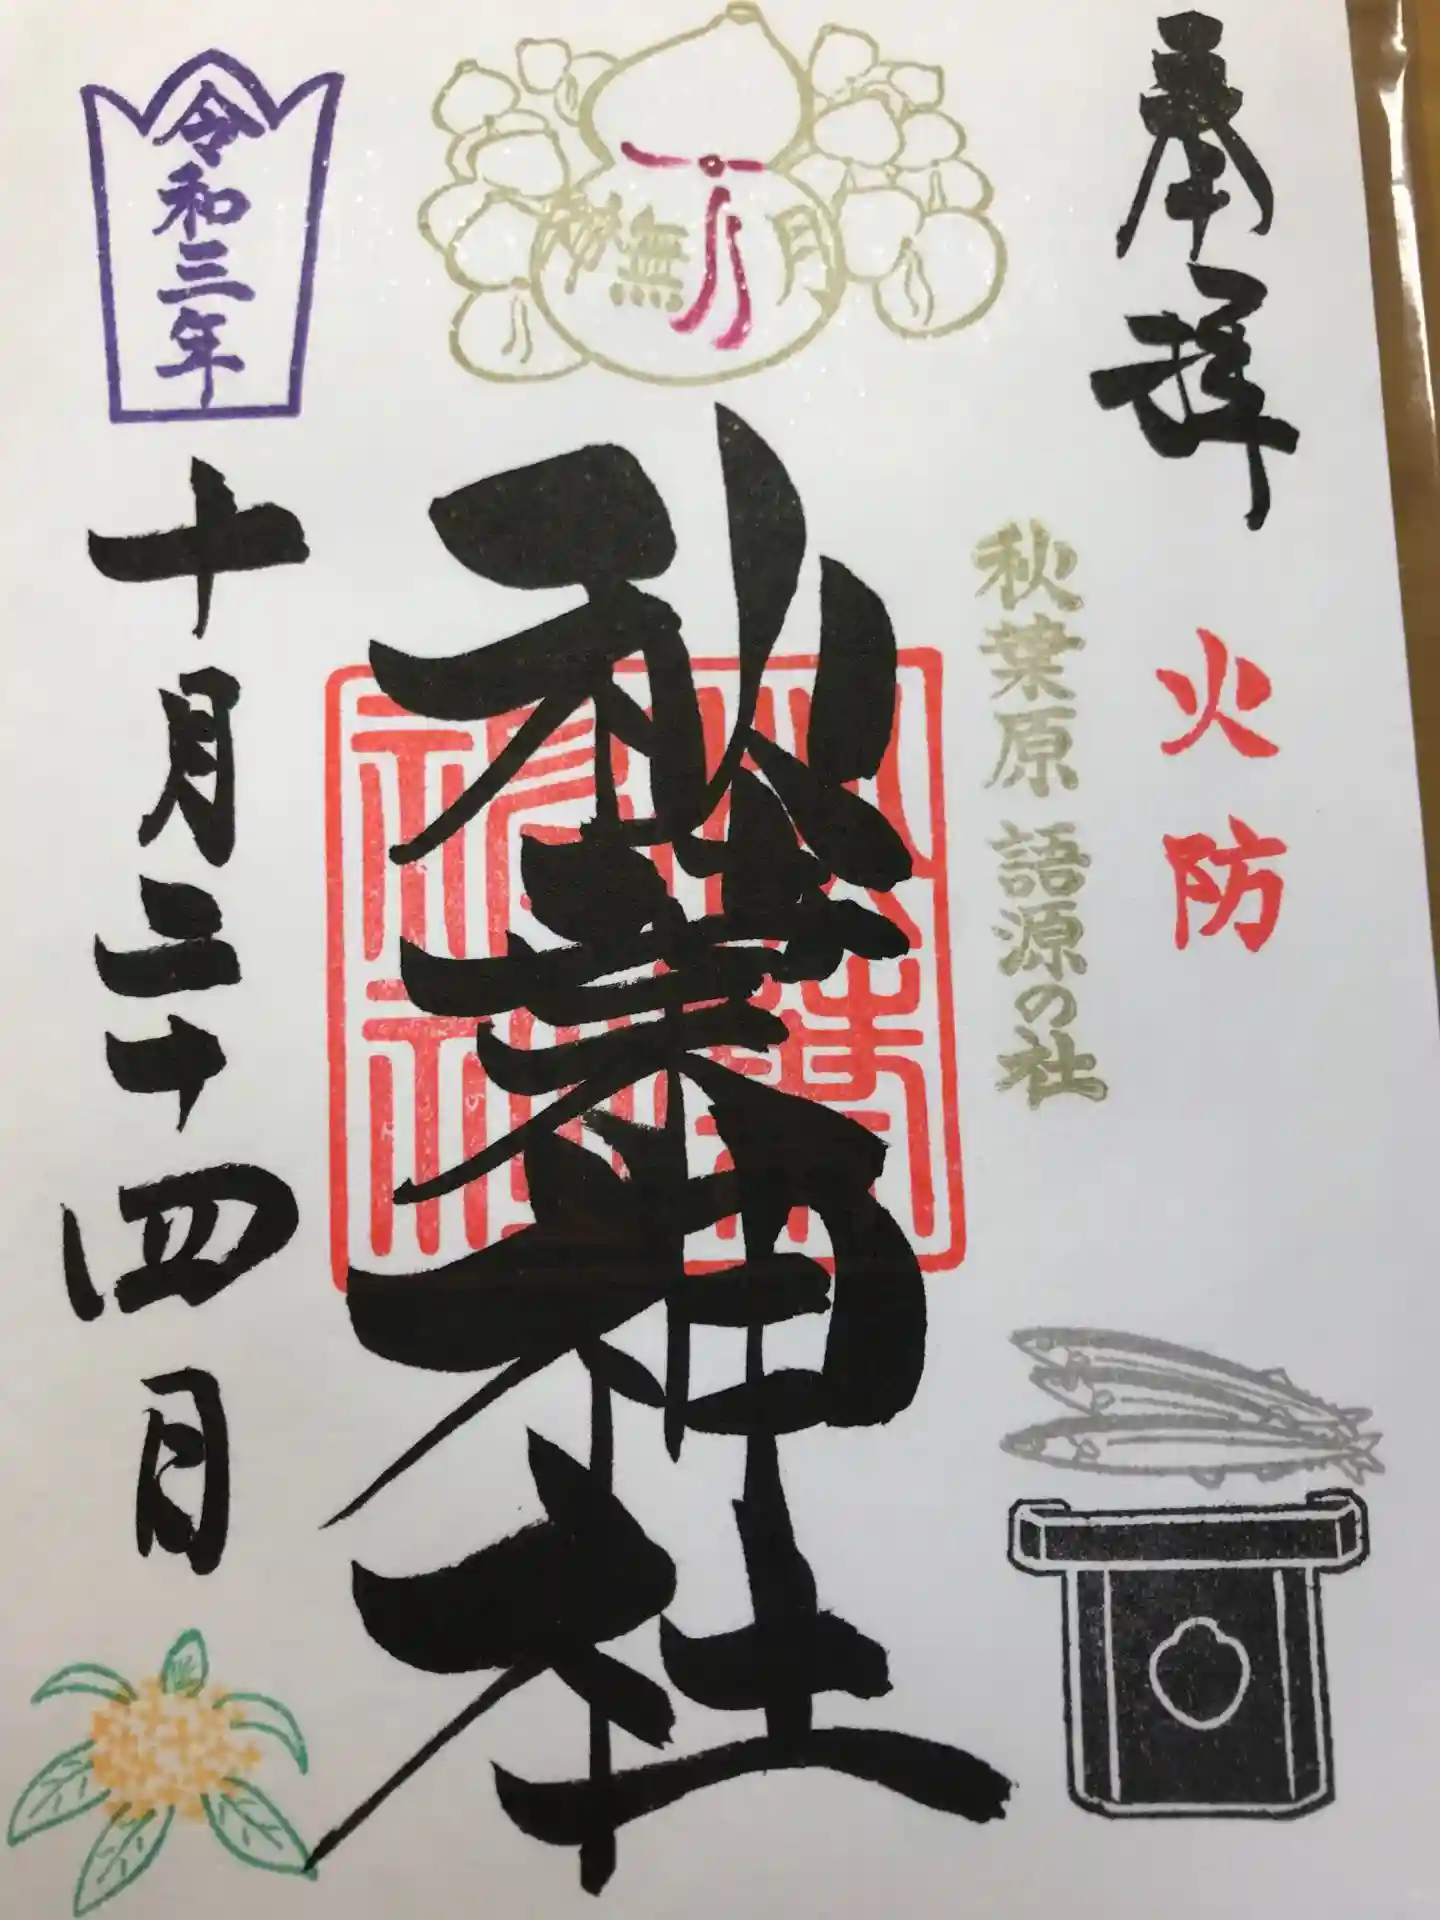 奉拝
火防
秋葉原 語源の社
神無月
秋葉神社
秋葉神社
令和三年
十月二十四日